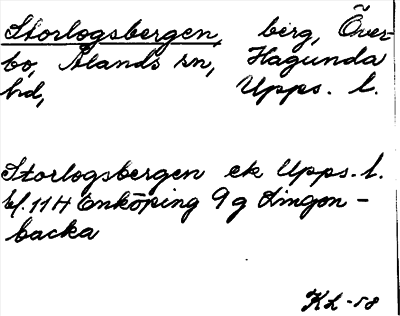 Storlogsbergen, berg, Över-
bo, Ålands sn, Hagunda
hd, Upps. l.
Storlogsbergen ek Upps. l.
bl. 11 H Enköping 9 g Lingon-
backa
KL-58